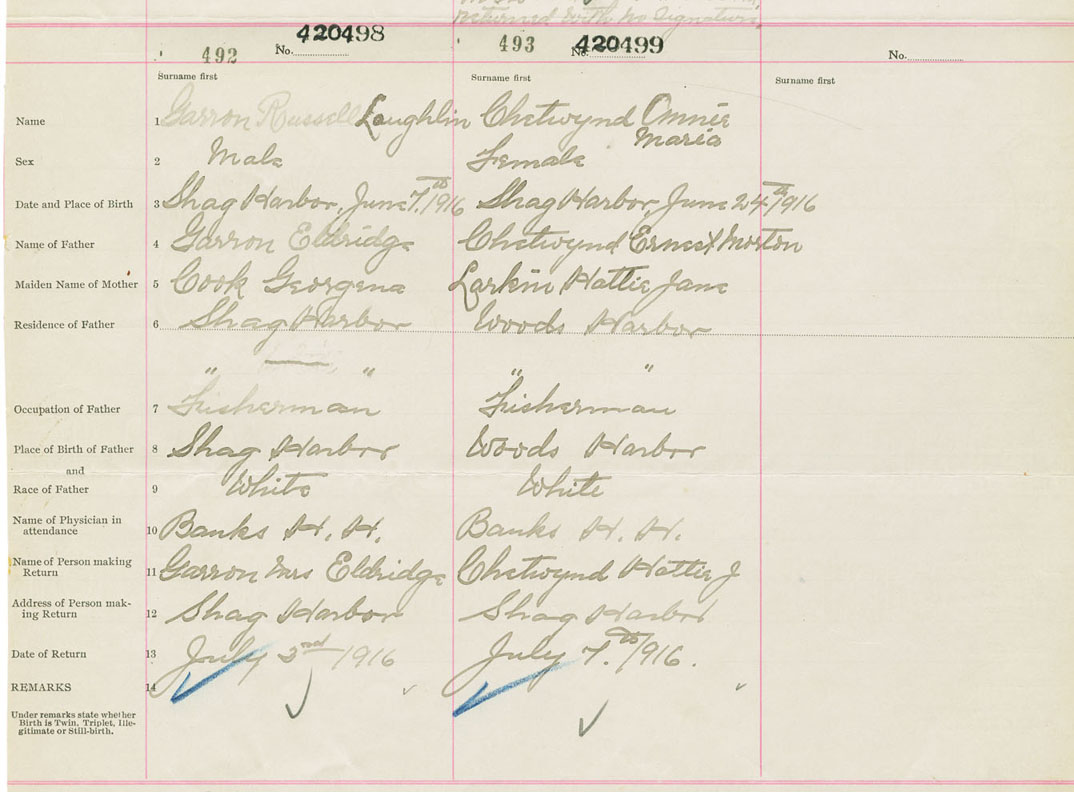 Returned with no Signature.
492 No. 420498 493 No. 420499 No.
Surname first Surname first Surname first
Name 1 Garron Russell Laughlin Chetwynd Omnie
Maria
Sex 2 Male Female
Date and Place of Birth 3 Shag Harbor, June 7.th 1916 Shag Harbor, June 24th 1916
Name of Father 4 Garron Eldridge Chetwynd Ernest Morton
Maiden Name of Mother 5 Cook Georgena Larkin Hattie Jane
Residence of Father 6 Shag Harbor Woods Harbor
" " " "
Occupation of Father 7 Fisherman Fisherman
Place of Birth of Father 8 Shag Harbor Woods Harbor
and
Race of Father 9 White White
Name of Physician in
attendance 10 Banks H. H. Banks H. H.
Name of Person making
Return 11 Garron Mrs Eldridge Chetwynd Hattie J
Address of Person mak-
ing Return 12 Shag Harbor Shag Harbor
Date of Return 13 July 3rd 1916 July 7.th 1916.
REMARKS 14
Under remarks state whether
Birth is Twin, Triplet, Ille-
gitimate or Still-birth.